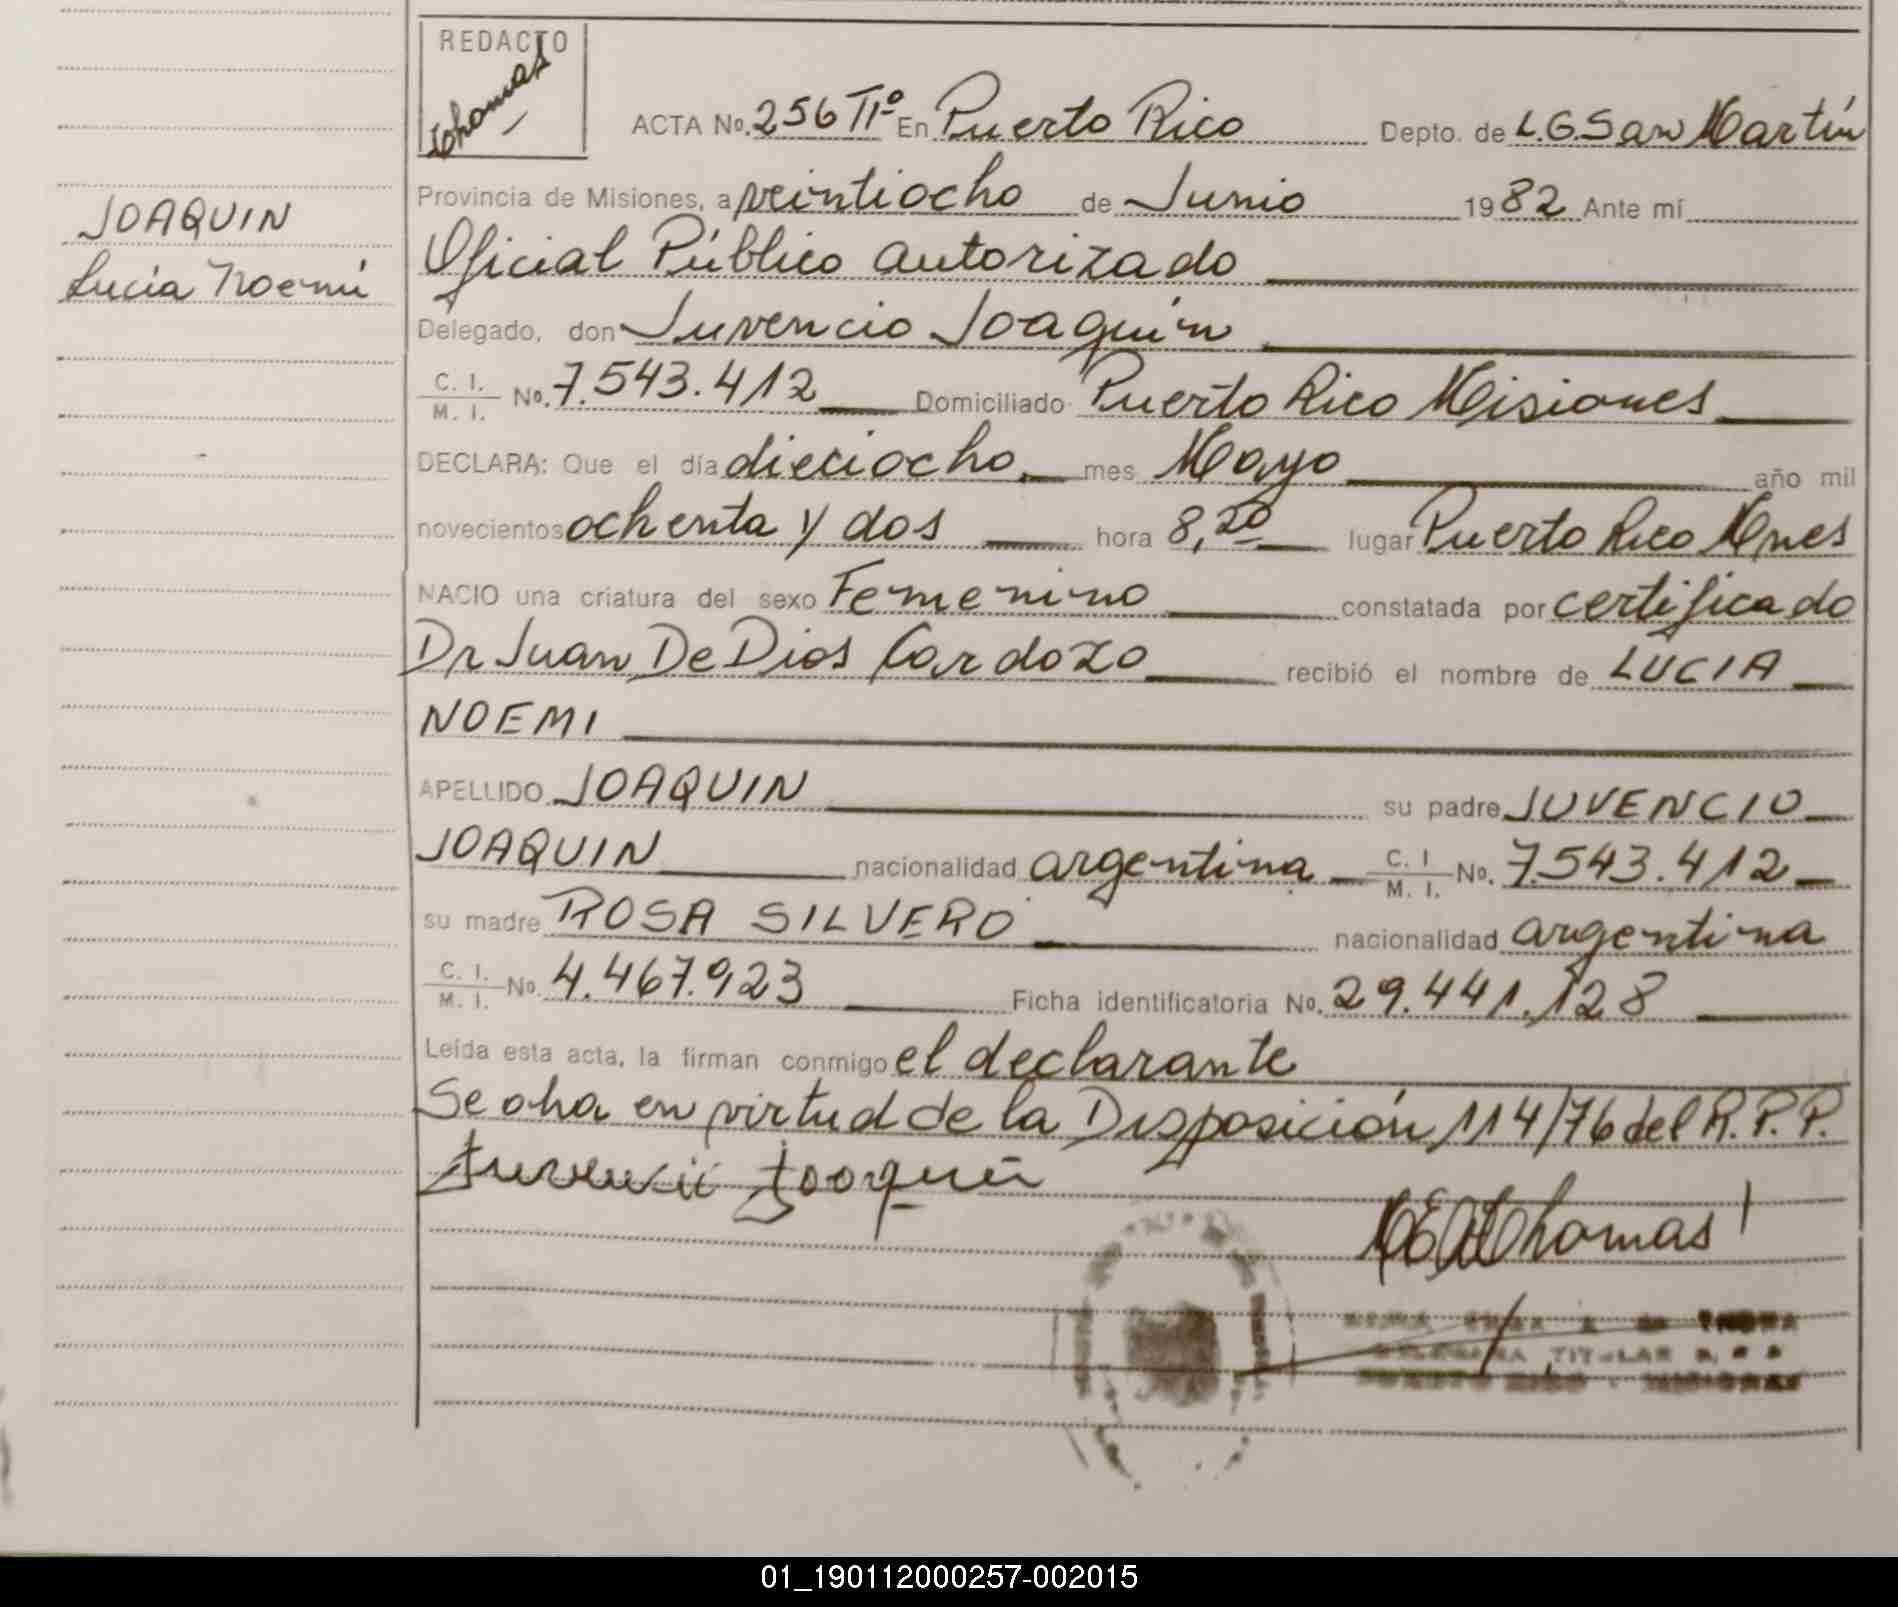 REDACTO
Thomas
ACTA No. 256 Tº En Puerto Rico Depto. de L.G.San Martín
Provincia de Misiones, a veintiocho de Junio 1982 Ante mí
JOAQUIN
Lucía Noemí
Oficial Público autorizado
Delegado, don Juvencio Joaquín
C. I. / M. I. No. 7.543.412 Domiciliado Puerto Rico Misiones
DECLARA: Que el día dieciocho. mes Mayo año mil
novecientos ochenta y dos hora 8,20 lugar Puerto Rico Mnes
NACIO una criatura del sexo Femenino constatada por certificado
Dr Juan De Dios Cardozo recibió el nombre de LUCIA
NOEMI
APELLIDO JOAQUIN su padre JUVENCIO
JOAQUIN nacionalidad argentina C. I / M. I. No. 7.543.412
su madre ROSA SILVERO nacionalidad argentina
C. I. / M. I. No. 4.467.923 Ficha identificatoria No. 29.441.128
Leída esta acta, la firman conmigo el declarante
Se in virtud de la Disposición 114/76 del R.P.P.
Juvencio Joaquin
Thomas
TITULAR
01_190112000257-002015